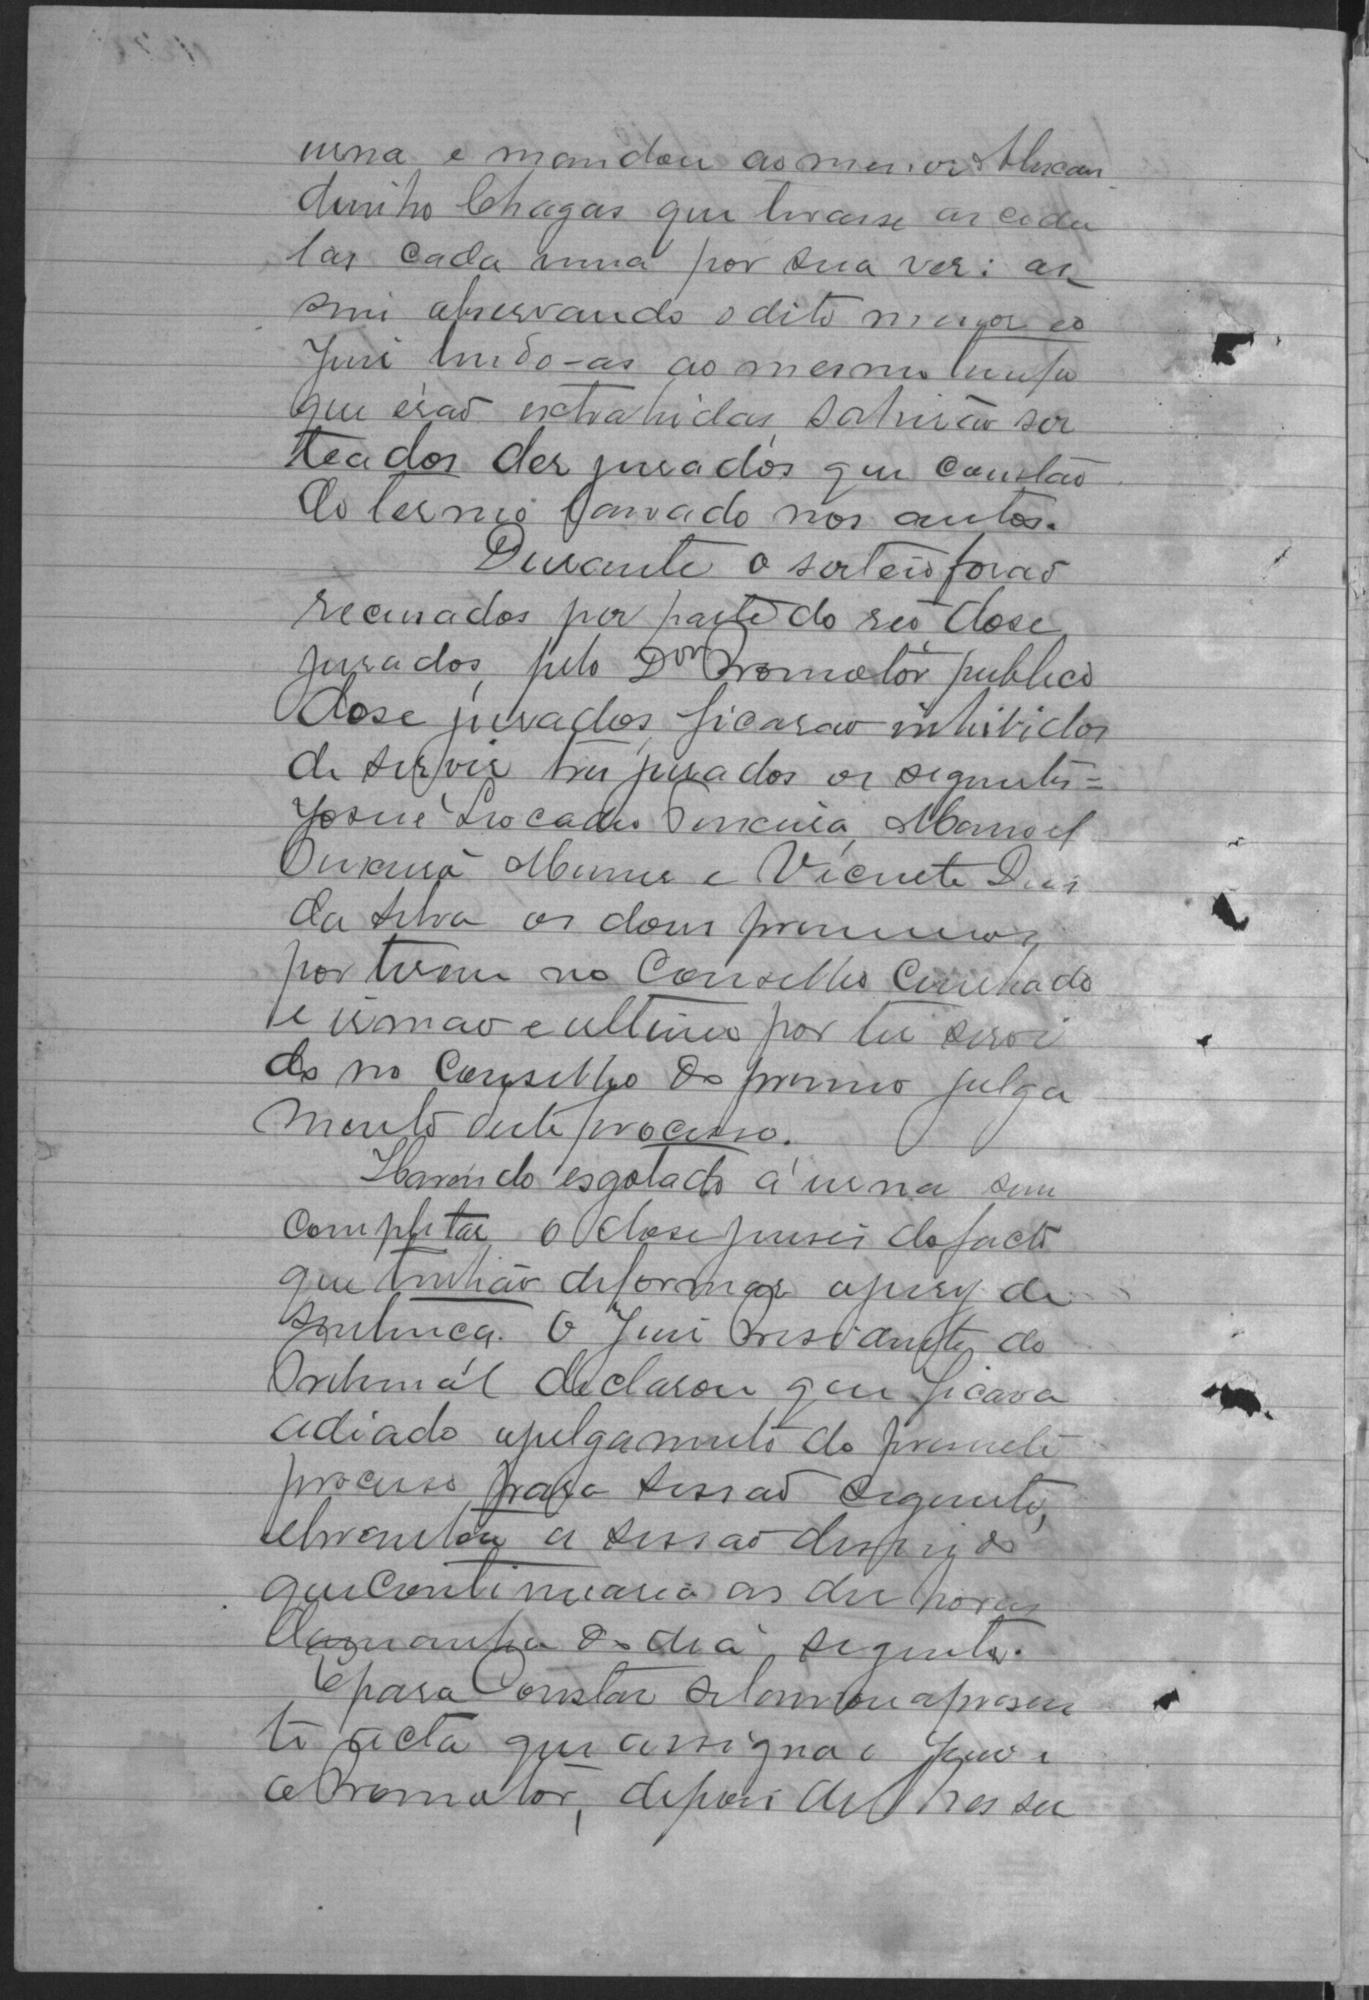 urna e mandou ao menor Alexan
drinho Chagas que tirasse as cedu
las cada uma por sua vez: as
sim observando o dito menor eo
Juri lendo-as ao mesmo tempo
que érão extrahidas, sahirão sor
teados des jurados que constão
do termo lavrado nos autos.
Durante o sorteio forão
recusados por parte do reo dose
jurados, pelo Dor Promotor publico
dose jurados, ficarão inhibidos
de servir tres jurados os seguintes =
Josué Leocadio Teixeira, Manoel
Teixeira e Vicente Dias
da Silva os dous primeiros
por terem no Conselho Cunhado
e irmão e ultimo por ter servi
do no Conselho do primeiro julga
mento deste processo.
Havendo esgotado a urna sem
completar o dose juises de facto
que tinhão de formar o jury de
sentença. O Juiz Presidente do
Tribunal declarou que ficava
adiado o julgamento do presente
processo para sessão seguinte,
elevantou a sessão
que continuaria as des horas
da manhã do dia seguinte.
E para Constar se lavrou apresen
te acta que assigna o Juiz e
o Promotor, depois de lhes ser